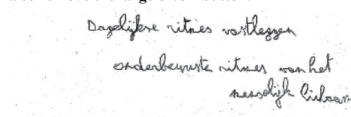 Dagelijkse ritmes vastleggen
onderbewuste ritmes van het
menselijk lichaam